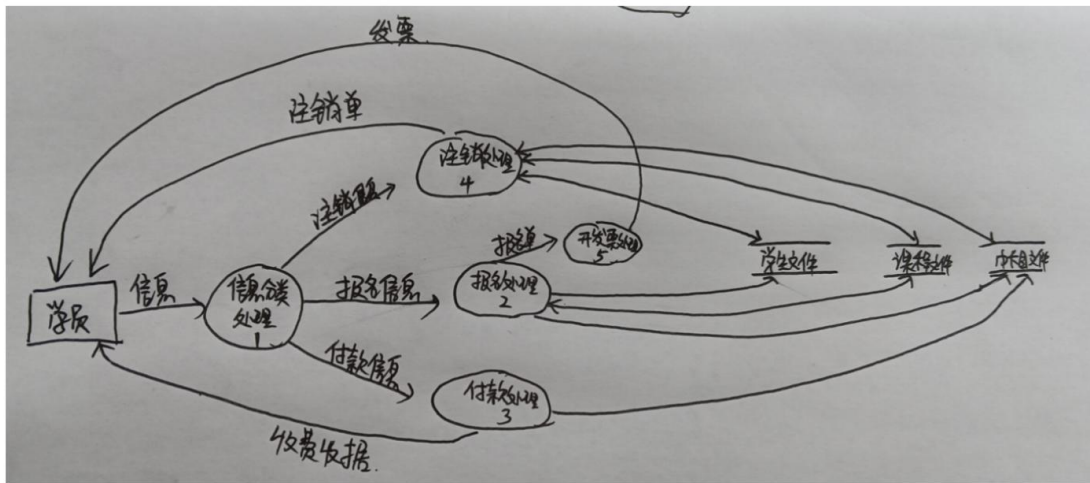 发票
注销单
注销处理
4
注销信息
报名单
开发票处理
5
学生文件
课程文件
帐目文件
信息
学员
信息分类
处理
1
报名信息
报名处理
2
付款信息
付款处理
3
收费收据